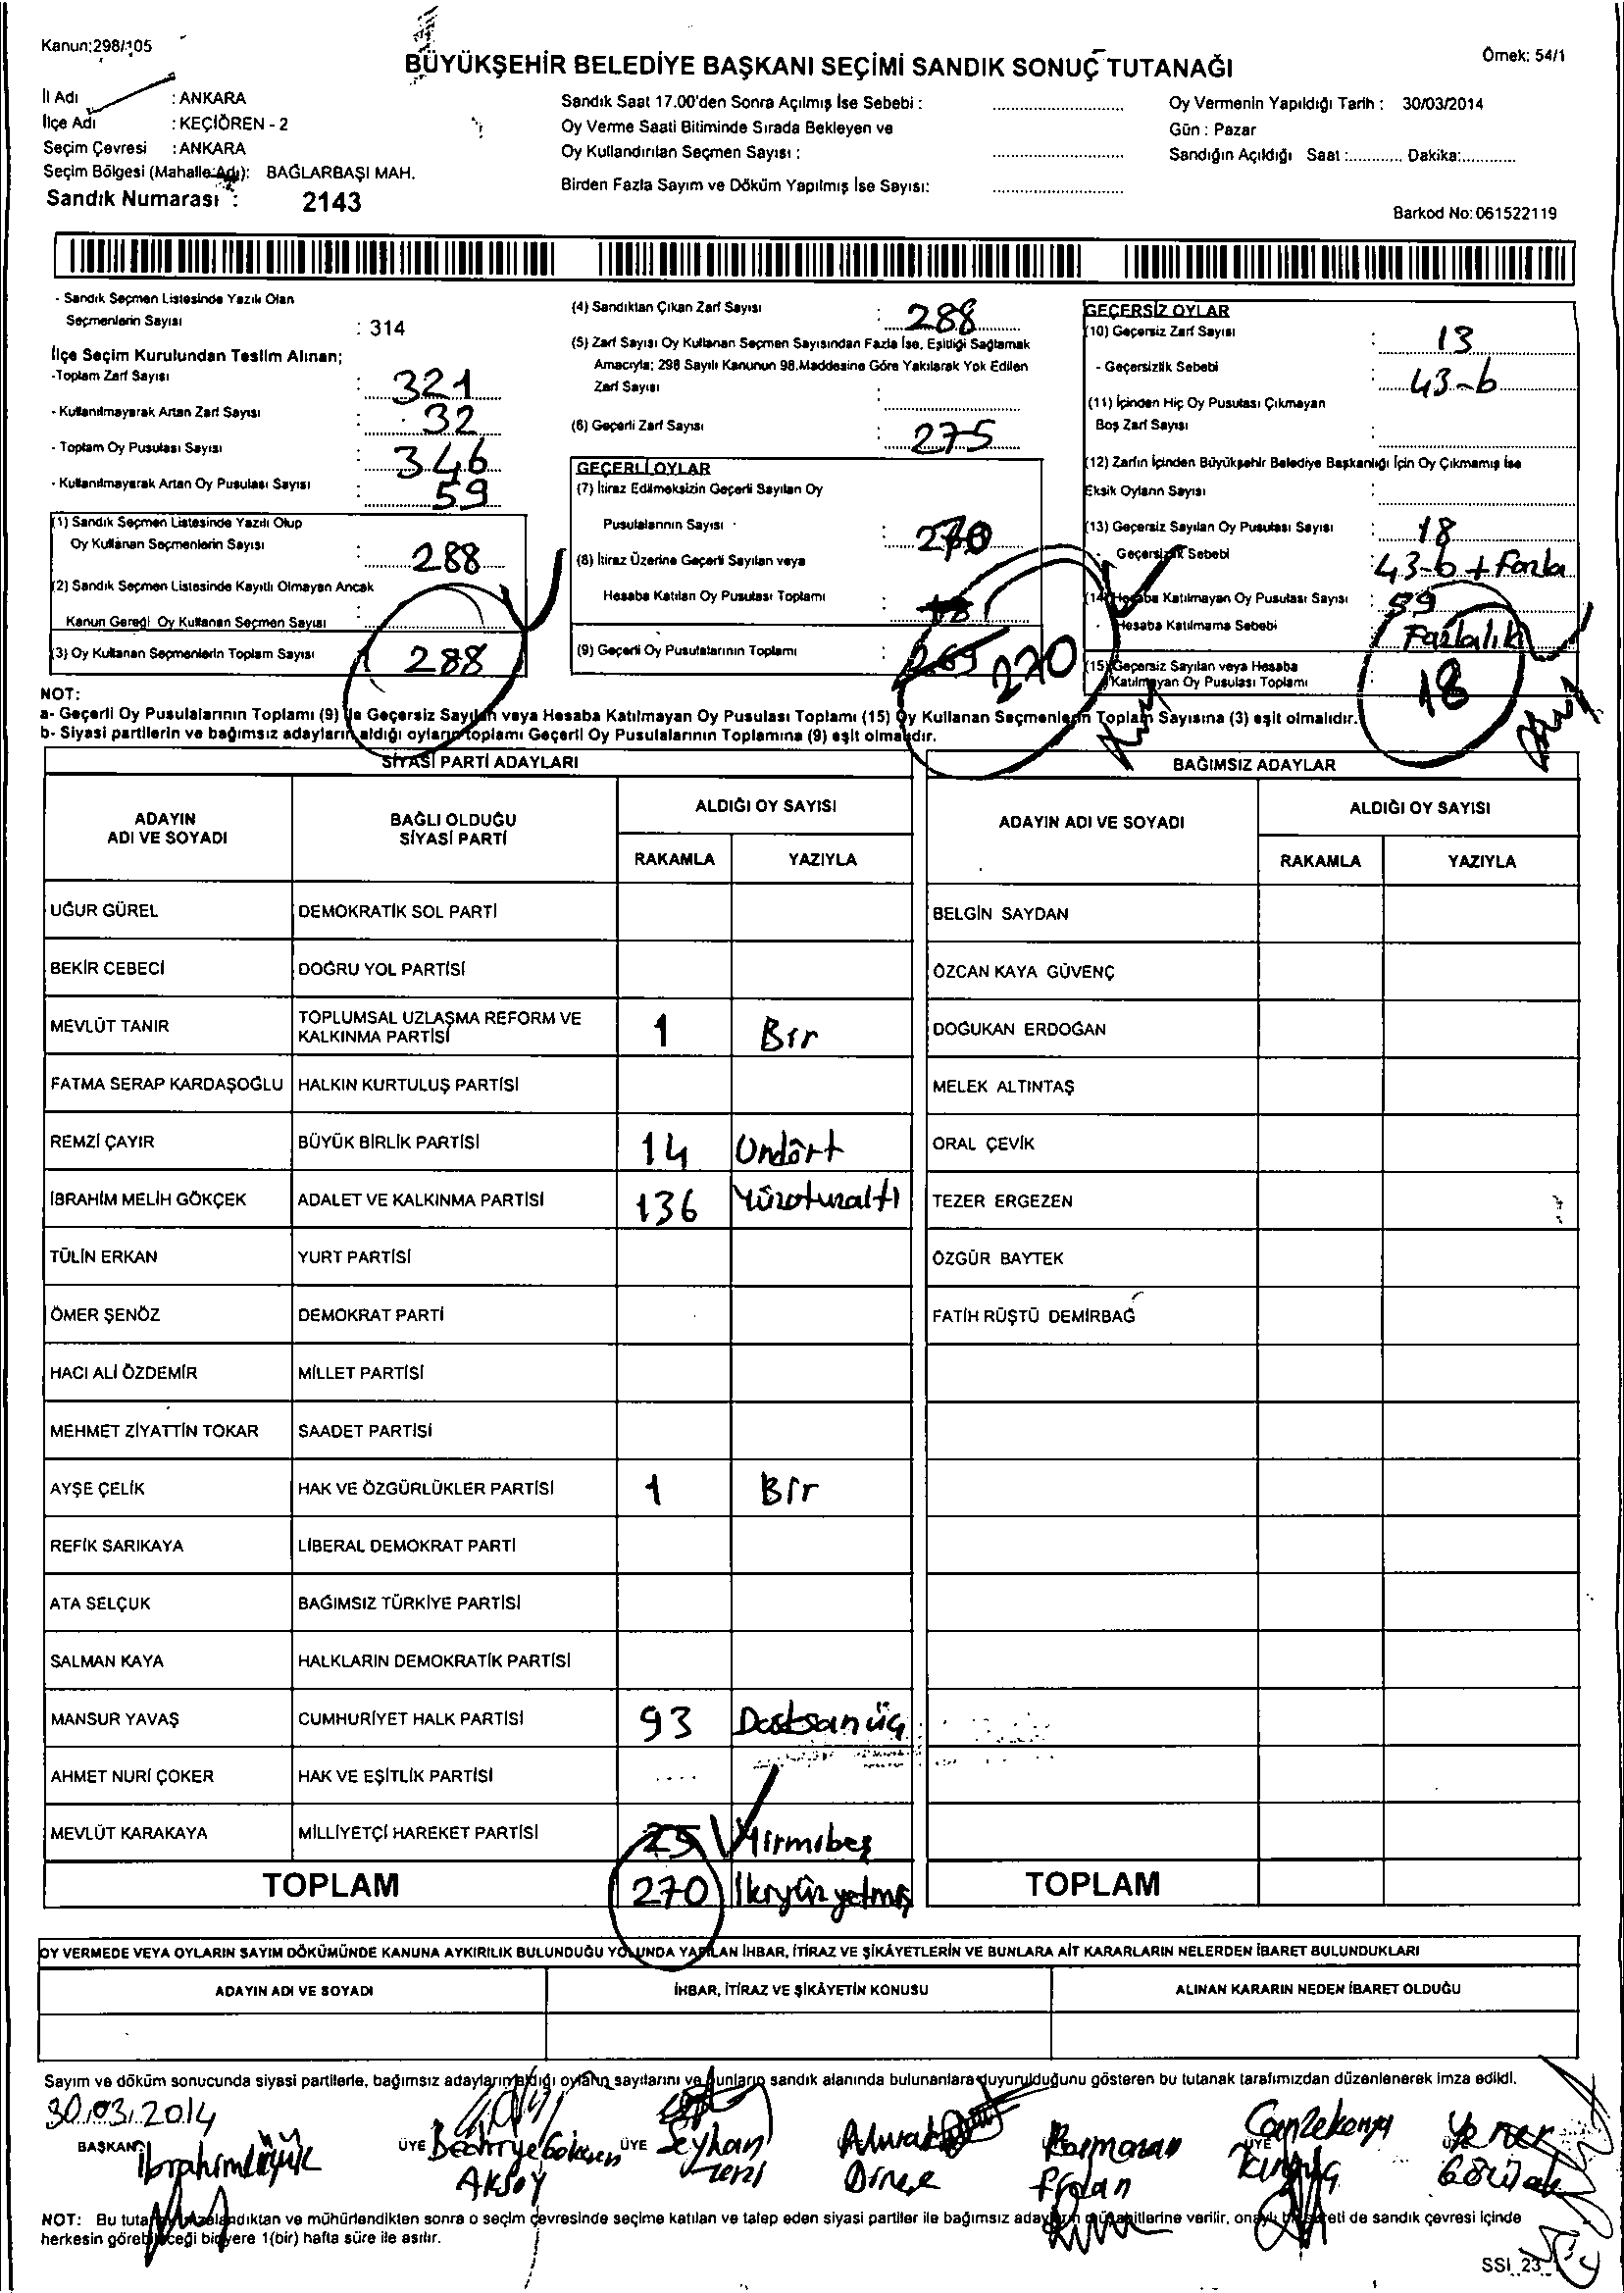 Kanun:298/105
Örnek: 54/1
BÜYÜKŞEHİR BELEDİYE BAŞKANI SEÇİMİ SANDIK SONUÇ TUTANAĞI
İl Adı : ANKARA
İlçe Adı : KEÇİÖREN - 2
Seçim Çevresi : ANKARA
Seçim Bölgesi (Mahalle Adı): BAĞLARBAŞI MAH.
Sandık Numarası : 2143
Sandık Saat 17.00'den Sonra Açılmış İse Sebebi :
Oy Verme Saati Bitiminde Sırada Bekleyen ve
Oy Kullandırılan Seçmen Sayısı :
Birden Fazla Sayım ve Döküm Yapılmış İse Sayısı:
Oy Vermenin Yapıldığı Tarih : 30/03/2014
Gün : Pazar
Sandığın Açıldığı Saat :............ Dakika:............
Barkod No: 061522119
- Sandık Seçmen Listesinde Yazılı Olan
Seçmenlerin Sayısı : 314
İlçe Seçim Kurulundan Teslim Alınan;
-Toplam Zarf Sayısı : 321
- Kullanılmayarak Artan Zarf Sayısı : 32
- Toplam Oy Pusulası Sayısı : 346
- Kullanılmayarak Artan Oy Pusulası Sayısı : 59
(1) Sandık Seçmen Listesinde Yazılı Olup
Oy Kullanan Seçmenlerin Sayısı : 288
(2) Sandık Seçmen Listesinde Kayıtlı Olmayan Ancak
Kanun Gereği Oy Kullanan Seçmen Sayısı :
(3) Oy Kullanan Seçmenlerin Toplam Sayısı : 288
(4) Sandıktan Çıkan Zarf Sayısı : 288
(5) Zarf Sayısı Oy Kullanan Seçmen Sayısından Fazla İse, Eşitliği Sağlamak
Amacıyla; 298 Sayılı Kanunun 98.Maddesine Göre Yakılarak Yok Edilen
Zarf Sayısı :
(6) Geçerli Zarf Sayısı : 275
GEÇERLİ OYLAR
(7) İtiraz Edilmeksizin Geçerli Sayılan Oy
Pusulalarının Sayısı : 270
(8) İtiraz Üzerine Geçerli Sayılan veya
Hesaba Katılan Oy Pusulası Toplamı :
(9) Geçerli Oy Pusulalarının Toplamı : 270
GEÇERSİZ OYLAR
(10) Geçersiz Zarf Sayısı : 13
- Geçersizlik Sebebi : 43-b
(11) İçinden Hiç Oy Pusulası Çıkmayan
Boş Zarf Sayısı :
(12) Zarfın İçinden Büyükşehir Belediye Başkanlığı İçin Oy Çıkmamış İse
Eksik Oyların Sayısı :
(13) Geçersiz Sayılan Oy Pusulası Sayısı : 18
- Geçersizlik Sebebi : 43-b + Fazla
(14) Hesaba Katılmayan Oy Pusulası Sayısı : 59
- Hesaba Katılmama Sebebi Fazlalık
(15) Geçersiz Sayılan veya Hesaba
Katılmayan Oy Pusulası Toplamı 18
NOT:
a- Geçerli Oy Pusulalarının Toplamı (9) ile Geçersiz Sayılan veya Hesaba Katılmayan Oy Pusulası Toplamı (15) Oy Kullanan Seçmenlerin Toplam Sayısına (3) eşit olmalıdır.
b- Siyasi partilerin ve bağımsız adayların aldığı oyların toplamı Geçerli Oy Pusulalarının Toplamına (9) eşit olmalıdır.
SİYASİ PARTİ ADAYLARI
ADAYIN ADI VE SOYADI
BAĞLI OLDUĞU SİYASİ PARTİ
ALDIĞI OY SAYISI
RAKAMLA YAZIYLA
UĞUR GÜREL DEMOKRATİK SOL PARTİ
BEKİR CEBECİ DOĞRU YOL PARTİSİ
MEVLÜT TANIR TOPLUMSAL UZLAŞMA REFORM VE KALKINMA PARTİSİ 1 Bir
FATMA SERAP KARDAŞOĞLU HALKIN KURTULUŞ PARTİSİ
REMZİ ÇAYIR BÜYÜK BİRLİK PARTİSİ 14 Ondört
İBRAHİM MELİH GÖKÇEK ADALET VE KALKINMA PARTİSİ 136 Yüzotuzaltı
TÜLİN ERKAN YURT PARTİSİ
ÖMER ŞENÖZ DEMOKRAT PARTİ
HACI ALİ ÖZDEMİR MİLLET PARTİSİ
MEHMET ZİYATTİN TOKAR SAADET PARTİSİ
AYŞE ÇELİK HAK VE ÖZGÜRLÜKLER PARTİSİ 1 Bir
REFİK SARIKAYA LİBERAL DEMOKRAT PARTİ
ATA SELÇUK BAĞIMSIZ TÜRKİYE PARTİSİ
SALMAN KAYA HALKLARIN DEMOKRATİK PARTİSİ
MANSUR YAVAŞ CUMHURİYET HALK PARTİSİ 93 Doksanüç
AHMET NURİ ÇOKER HAK VE EŞİTLİK PARTİSİ
MEVLÜT KARAKAYA MİLLİYETÇİ HAREKET PARTİSİ 25 Yirmibeş
TOPLAM 270 İkiyüzyetmiş
BAĞIMSIZ ADAYLAR
ADAYIN ADI VE SOYADI
ALDIĞI OY SAYISI
RAKAMLA YAZIYLA
BELGİN SAYDAN
ÖZCAN KAYA GÜVENÇ
DOĞUKAN ERDOĞAN
MELEK ALTINTAŞ
ORAL ÇEVİK
TEZER ERGEZEN
ÖZGÜR BAYTEK
FATİH RÜŞTÜ DEMİRBAĞ
TOPLAM
OY VERMEDE VEYA OYLARIN SAYIM DÖKÜMÜNDE KANUNA AYKIRILIK BULUNDUĞU YOLUNDA YAPILAN İHBAR, İTİRAZ VE ŞİKÂYETLERİN VE BUNLARA AİT KARARLARIN NELERDEN İBARET BULUNDUKLARI
ADAYIN ADI VE SOYADI
İHBAR, İTİRAZ VE ŞİKÂYETİN KONUSU
ALINAN KARARIN NEDEN İBARET OLDUĞU
Sayım ve döküm sonucunda siyasi partilerle, bağımsız adayların aldığı oyların sayılarını ve bunların sandık alanında bulunanlara duyurulduğunu gösteren bu tutanak tarafımızdan düzenlenerek imza edildi.
30.03.2014
BAŞKAN ÜYE ÜYE ÜYE
Seyhan
Aksoy
NOT: Bu tutanak imzalandıktan ve mühürlendikten sonra o seçim çevresinde seçime katılan ve talep eden siyasi partiler ile bağımsız adayların müşahitlerine verilir, onaylı bir sureti de sandık çevresi içinde
herkesin görebileceği bir yere 1(bir) hafta süre ile asılır.
SSI_23_